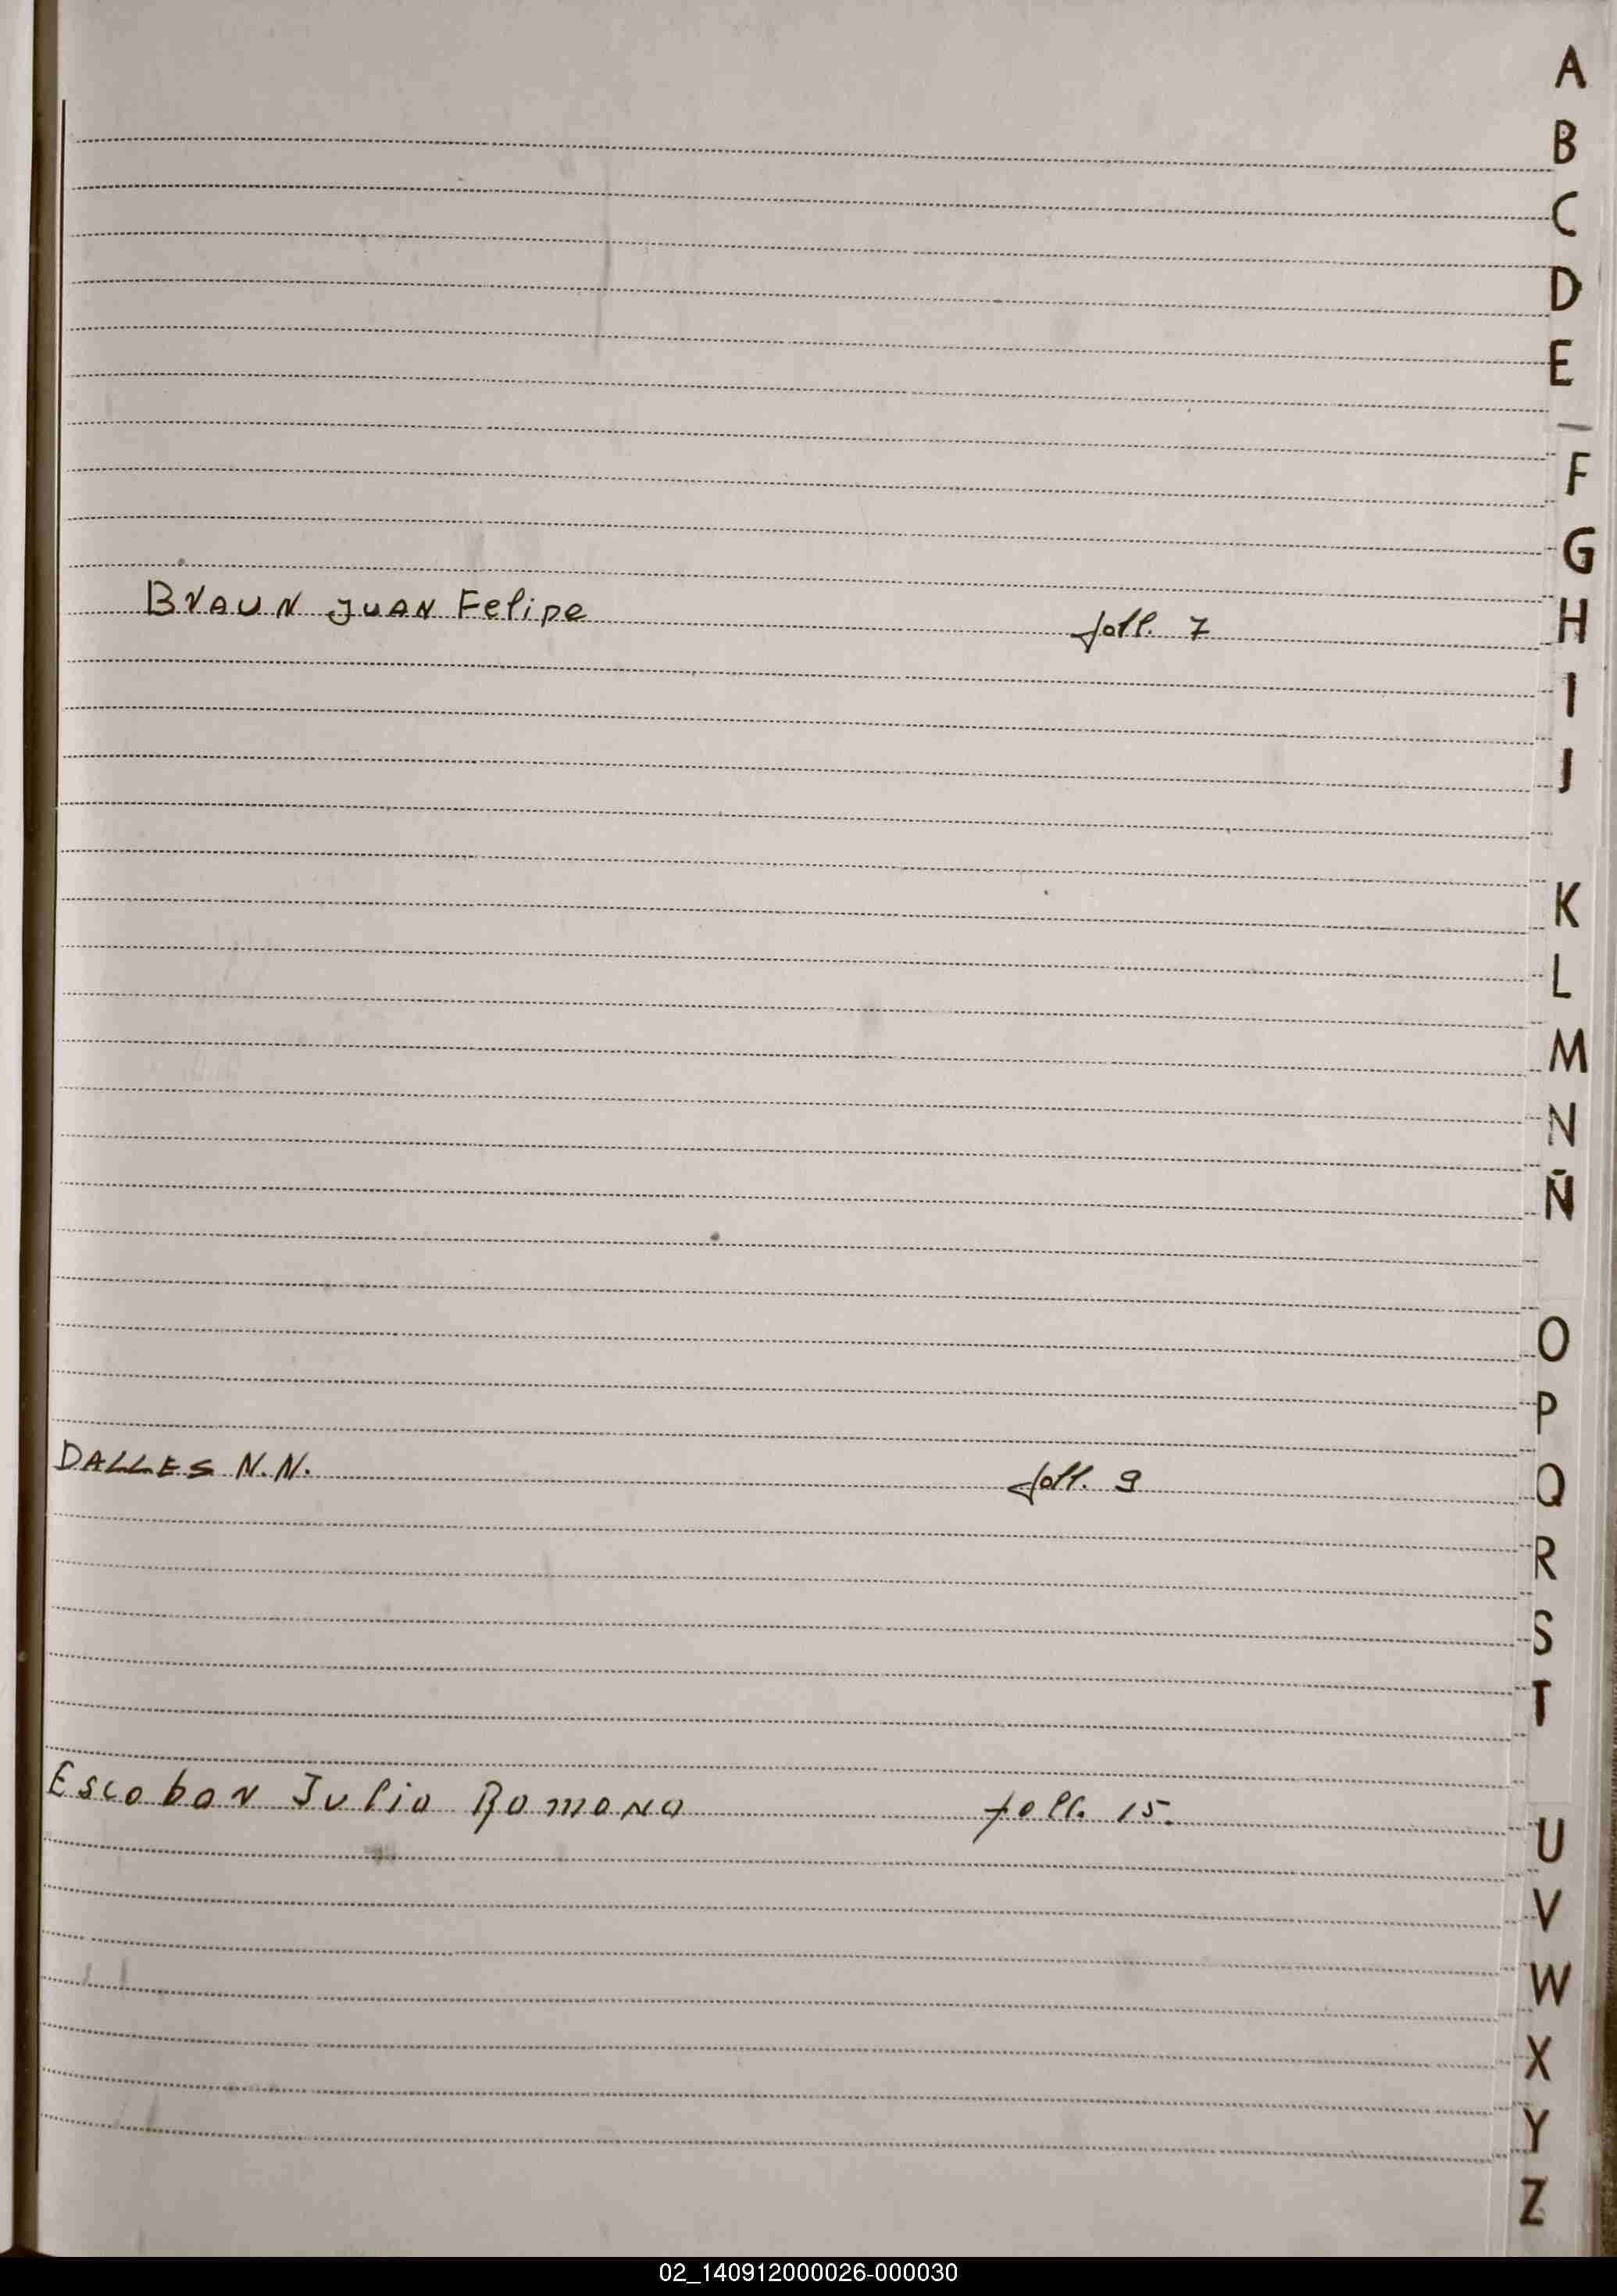 A
B
C
D
E
F
G
BrAUN JUAN Felipe foll. 7
H
I
J
K
L
M
N
Ñ
O
P
DALLES N.N. foll. 9
Q
R
S
T
Escobar Julio Romano foll. 15.
U
V
W
X
Y
Z
02_140912000026-000030